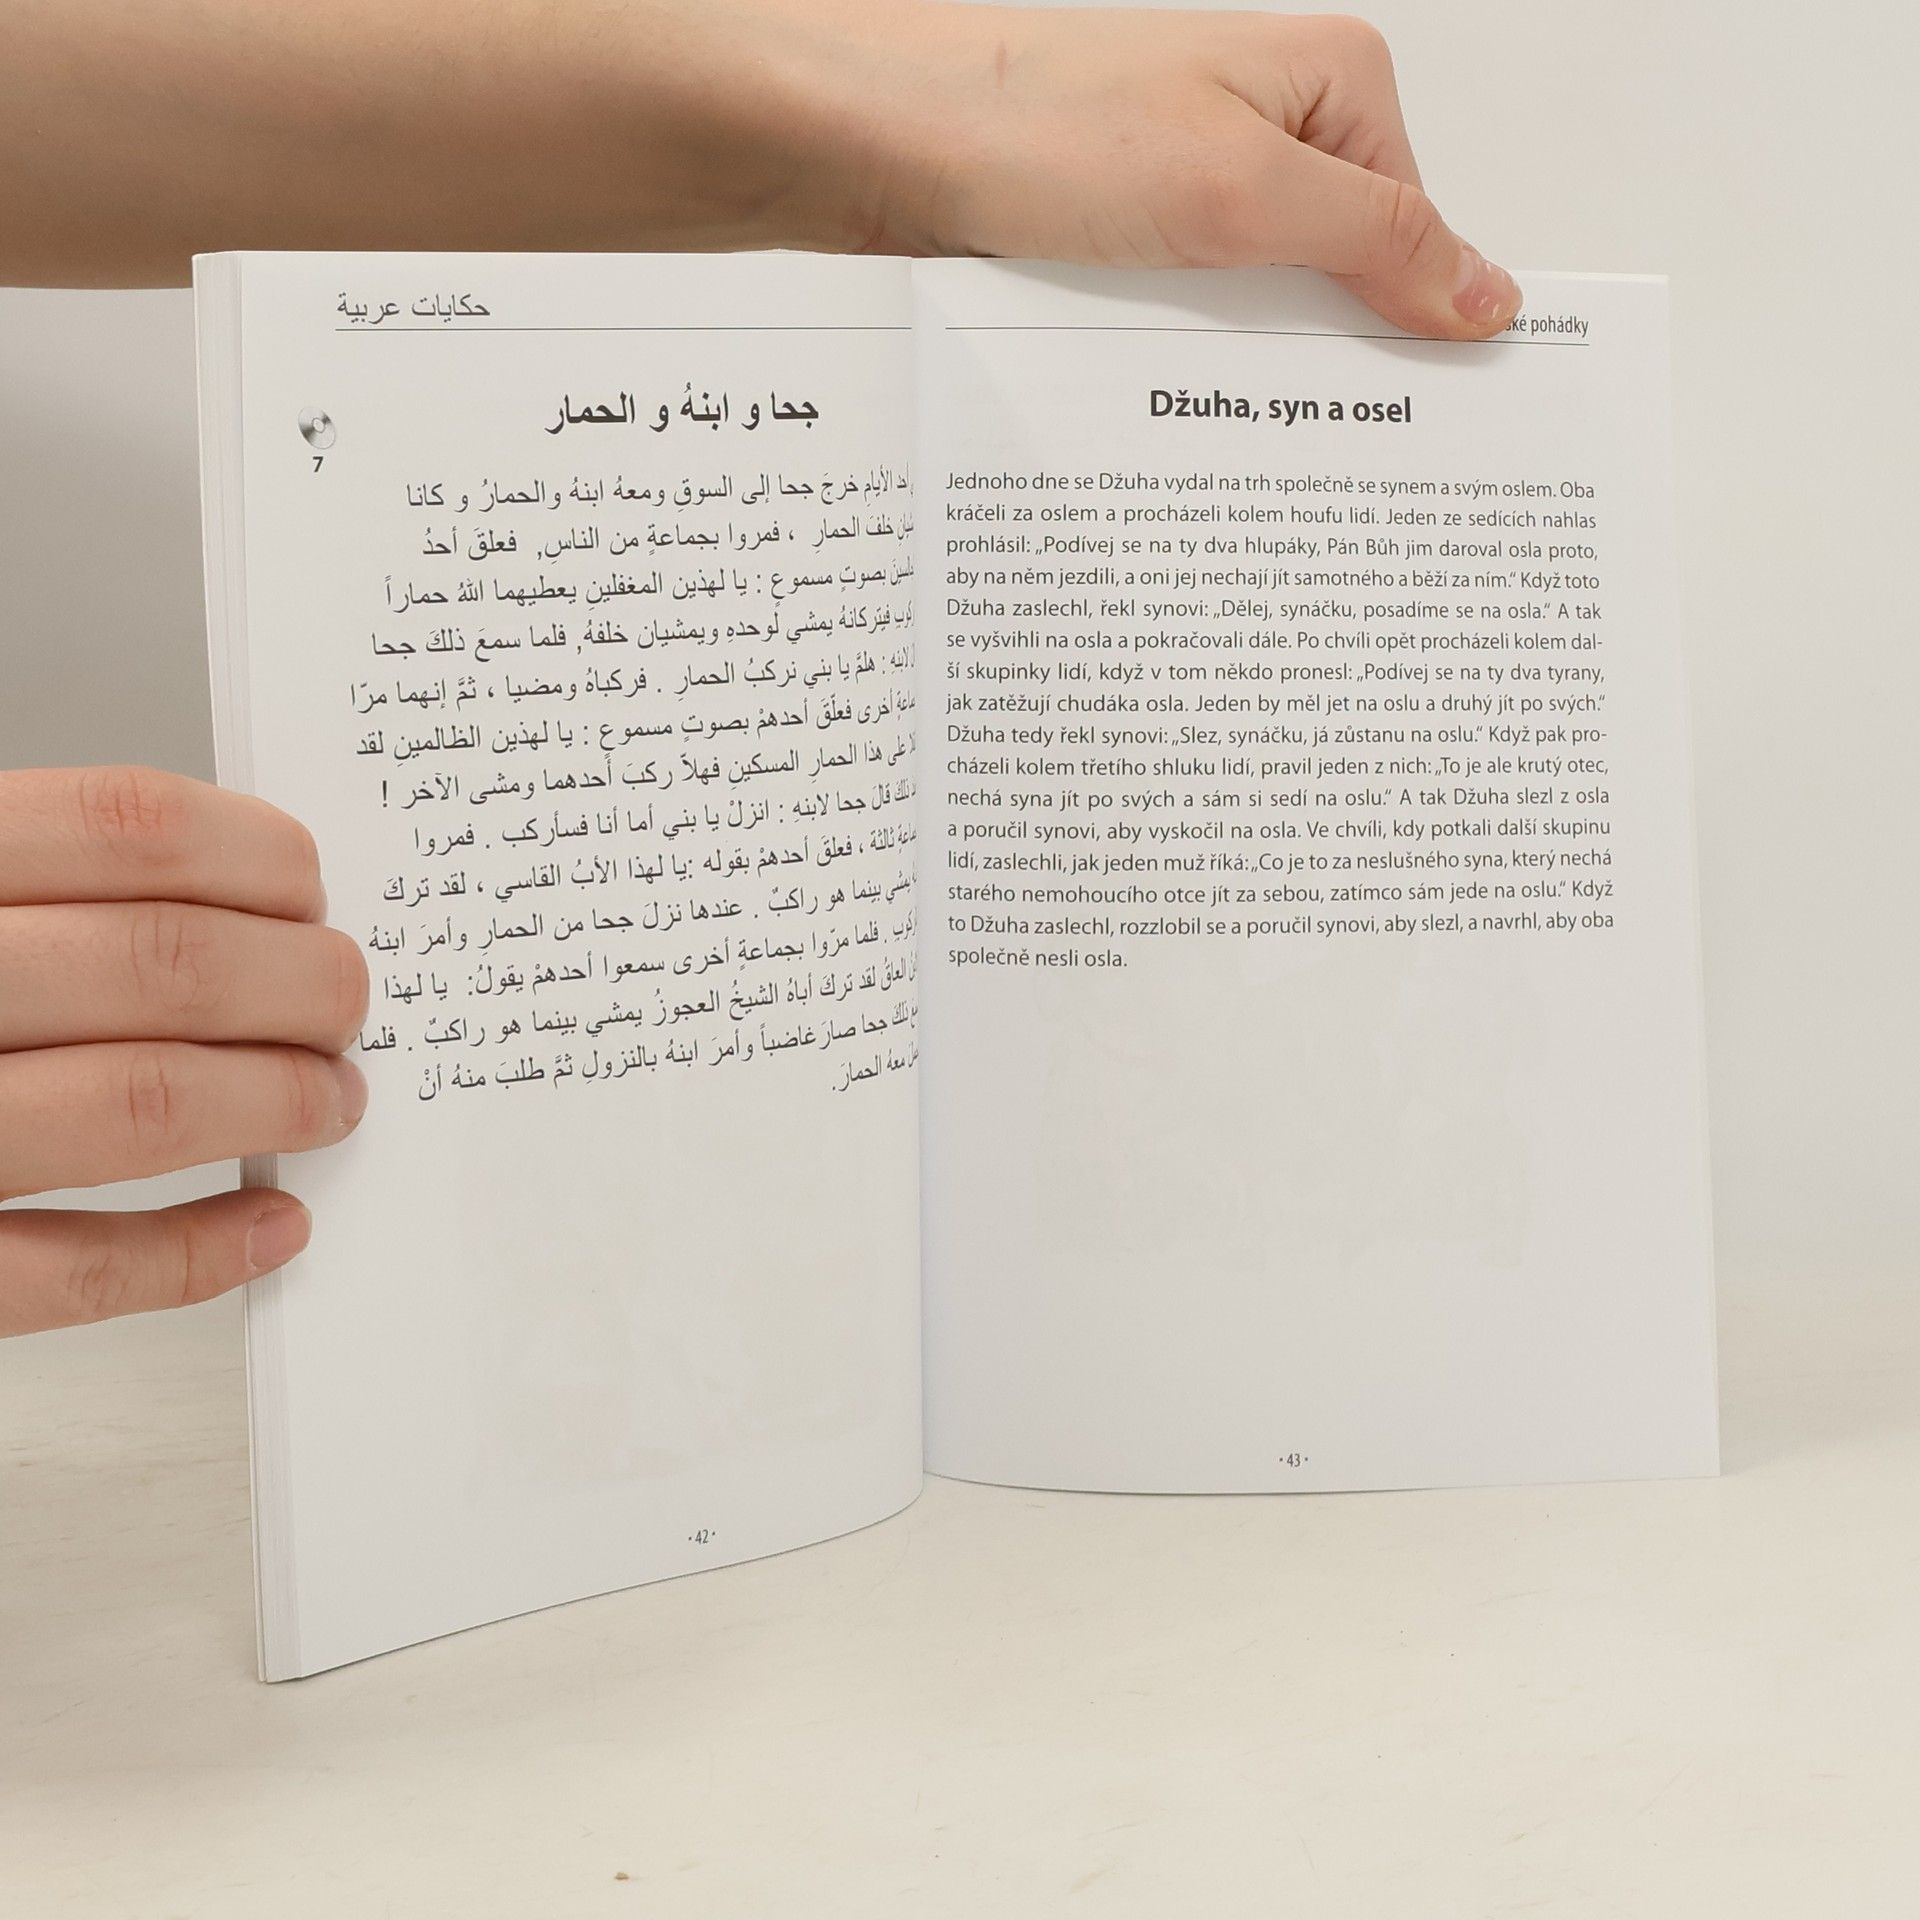 حكايات عربية
جحا و ابنهُ و الحمار
7
الأيامِ خرجَ جحا إلى السوقِ ومعهُ ابنهُ والحمارُ و كانا
خلفَ الحمارِ ، فمروا بجماعةٍ من الناسِ, فعلقَ أحدُ
بصوتٍ مسموعٍ : يا لهذين المغفلينِ يعطيهما اللهُ حماراً
فيتركانهُ يمشي لوحدهِ ويمشيان خلفهُ, فلما سمعَ ذلكَ جحا
لابنهِ : هلمَّ يا بني نركبُ الحمارِ . فركباهُ ومضيا ، ثمَّ إنهما مرّا
أخرى فعلّقَ أحدهمْ بصوتٍ مسموعٍ : يا لهذين الظالمينِ لقد
على هذا الحمارِ المسكينِ فهلاّ ركبَ أحدهما ومشى الآخر !
ذلكَ قالَ جحا لابنهِ : انزلْ يا بني أما أنا فسأركب . فمروا
ثالثة ، فعلقَ أحدهمْ بقوله :يا لهذا الأبُ القاسي ، لقد تركَ
يمشي بينما هو راكبٌ . عندها نزلَ جحا من الحمارِ وأمرَ ابنهُ
. فلما مرّوا بجماعةٍ أخرى سمعوا أحدهمْ يقولُ: يا لهذا
العاقُ لقد تركَ أباهُ الشيخُ العجوزُ يمشي بينما هو راكبٌ . فلما
ذلكَ جحا صارَ غاضباً وأمرَ ابنهُ بالنزولِ ثمَّ طلبَ منهُ أنْ
معهُ الحمارَ.
·42·
pohádky
Džuha, syn a osel
Jednoho dne se Džuha vydal na trh společně se synem a svým oslem. Oba
kráčeli za oslem a procházeli kolem houfu lidí. Jeden ze sedících nahlas
prohlásil: „Podívej se na ty dva hlupáky, Pán Bůh jim daroval osla proto,
aby na něm jezdili, a oni jej nechají jít samotného a běží za ním.“ Když toto
Džuha zaslechl, řekl synovi: „Dělej, synáčku, posadíme se na osla.“ A tak
se vyšvihli na osla a pokračovali dále. Po chvíli opět procházeli kolem dal-
ší skupinky lidí, když v tom někdo pronesl: „Podívej se na ty dva tyrany,
jak zatěžují chudáka osla. Jeden by měl jet na oslu a druhý jít po svých.“
Džuha tedy řekl synovi: „Slez, synáčku, já zůstanu na oslu.“ Když pak pro-
cházeli kolem třetího shluku lidí, pravil jeden z nich: „To je ale krutý otec,
nechá syna jít po svých a sám si sedí na oslu.“ A tak Džuha slezl z osla
a poručil synovi, aby vyskočil na osla. Ve chvíli, kdy potkali další skupinu
lidí, zaslechli, jak jeden muž říká: „Co je to za neslušného syna, který nechá
starého nemohoucího otce jít za sebou, zatímco sám jede na oslu.“ Když
to Džuha zaslechl, rozzlobil se a poručil synovi, aby slezl, a navrhl, aby oba
společně nesli osla.
·43·